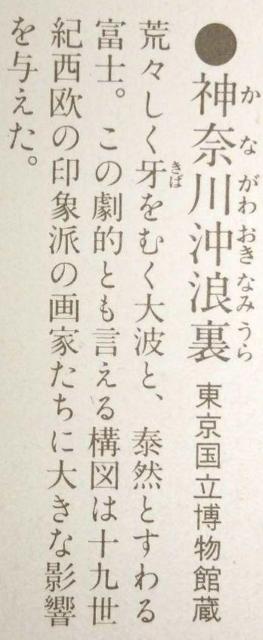 ●神奈川沖浪裏 東京国立博物館蔵
かながわおきなみうら
荒々しく牙をむく大波と、泰然とすわる
きば
富士。この劇的とも言える構図は十九世
紀西欧の印象派の画家たちに大きな影響
を与えた。